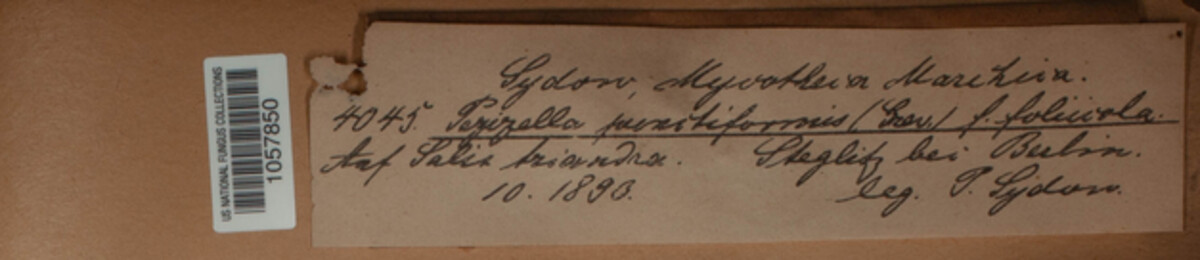 US NATIONAL FUNGUS COLLECTIONS
1057850
Sydow, Mycotheca Marchica.
4045. Pezizella punctiformis (Grev.) f. foliicola.
Auf Salix triandra. Steglitz bei Berlin.
10. 1893. leg. P. Sydow.